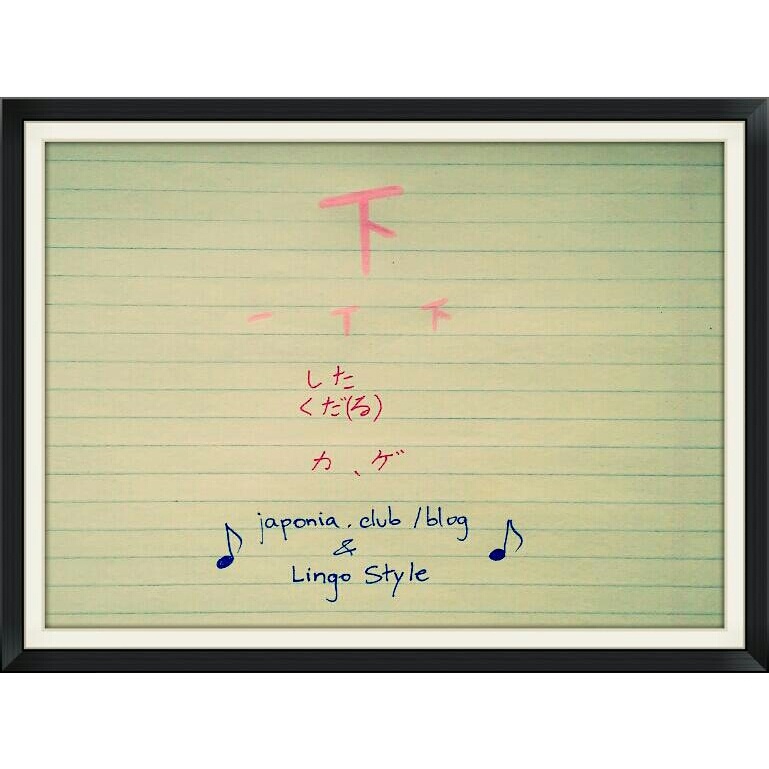 下
一 丅 下
した
くだ(る)
カ、ゲ
japonia.club/blog
&
Lingo Style